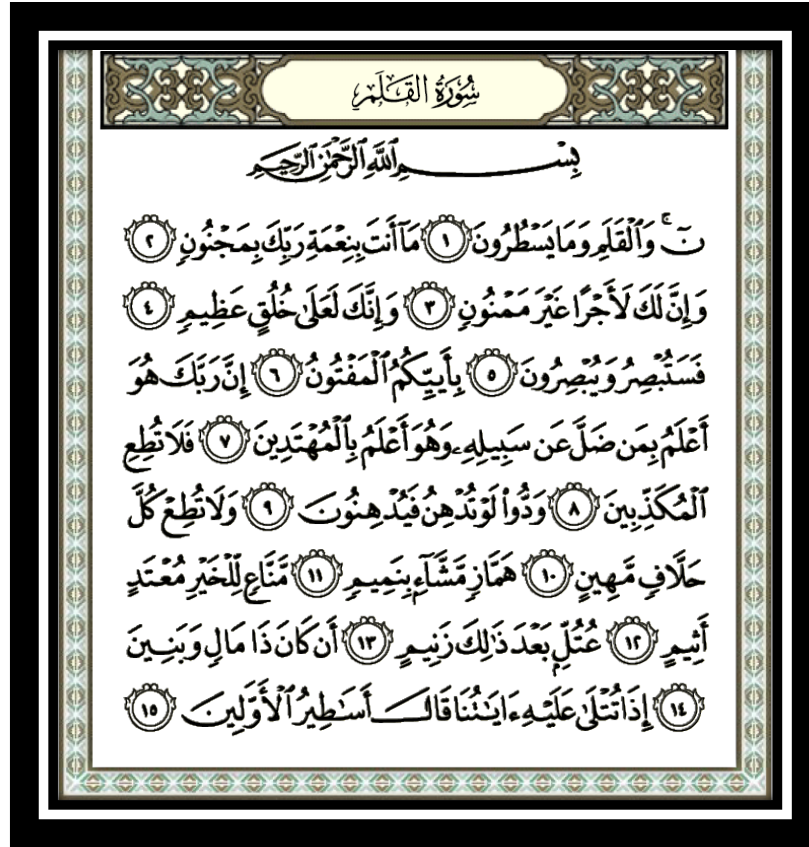 سُورَةُ القَلَمِ
بِسْمِ ٱللَّهِ ٱلرَّحْمَٰنِ ٱلرَّحِيمِ
نٓ ۚ وَٱلْقَلَمِ وَمَا يَسْطُرُونَ ١ مَآ أَنتَ بِنِعْمَةِ رَبِّكَ بِمَجْنُونٍ ٢
وَإِنَّ لَكَ لَأَجْرًا غَيْرَ مَمْنُونٍ ٣ وَإِنَّكَ لَعَلَىٰ خُلُقٍ عَظِيمٍ ٤
فَسَتُبْصِرُ وَيُبْصِرُونَ ٥ بِأَييِّكُمُ ٱلْمَفْتُونُ ٦ إِنَّ رَبَّكَ هُوَ
أَعْلَمُ بِمَن ضَلَّ عَن سَبِيلِهِۦ وَهُوَ أَعْلَمُ بِٱلْمُهْتَدِينَ ٧ فَلَا تُطِعِ
ٱلْمُكَذِّبِينَ ٨ وَدُّوا۟ لَوْ تُدْهِنُ فَيُدْهِنُونَ ٩ وَلَا تُطِعْ كُلَّ
حَلَّافٍ مَّهِينٍ ١٠ هَمَّازٍ مَّشَّآءٍۭ بِنَمِيمٍ ١١ مَّنَّاعٍ لِّلْخَيْرِ مُعْتَدٍ
أَثِيمٍ ١٢ عُتُلٍّۭ بَعْدَ ذَٰلِكَ زَنِيمٍ ١٣ أَن كَانَ ذَا مَالٍ وَبَنِينَ
١٤ إِذَا تُتْلَىٰ عَلَيْهِ ءَايَٰتُنَا قَالَ أَسَٰطِيرُ ٱلْأَوَّلِينَ ١٥